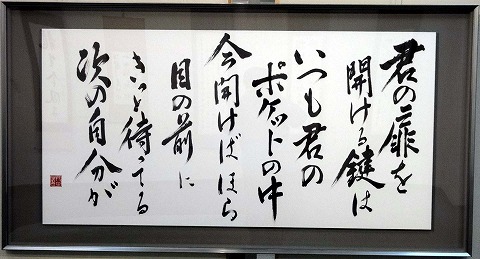 君の扉を
開ける鍵は
いつも君の
ポケットの中
今開けばほら
目の前に
きっと待ってる
次の自分が